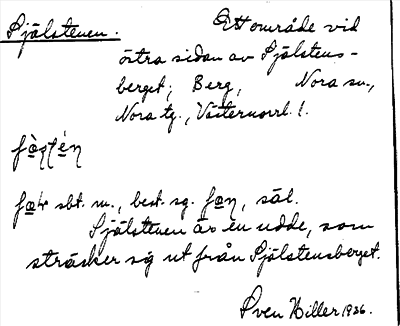 Själstenen.
Ett område vid
östra sidan av Själstens-
berget; Berg, Nora sn.,
Nora tg., Västernorrl. l.
sbt. m., best. sg. säl.
Själstenen är en udde, som
sträcker sig ut från Själstensberget.
Sven Hiller 1926.